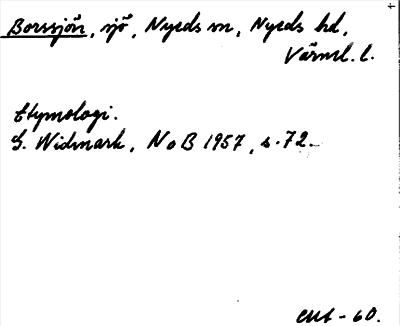 Borssjön, sjö, Nyeds sn, Nyeds hd,
Värml. l.
Etymologi.
G. Widmark, NoB 1957, s. 72.
-60.